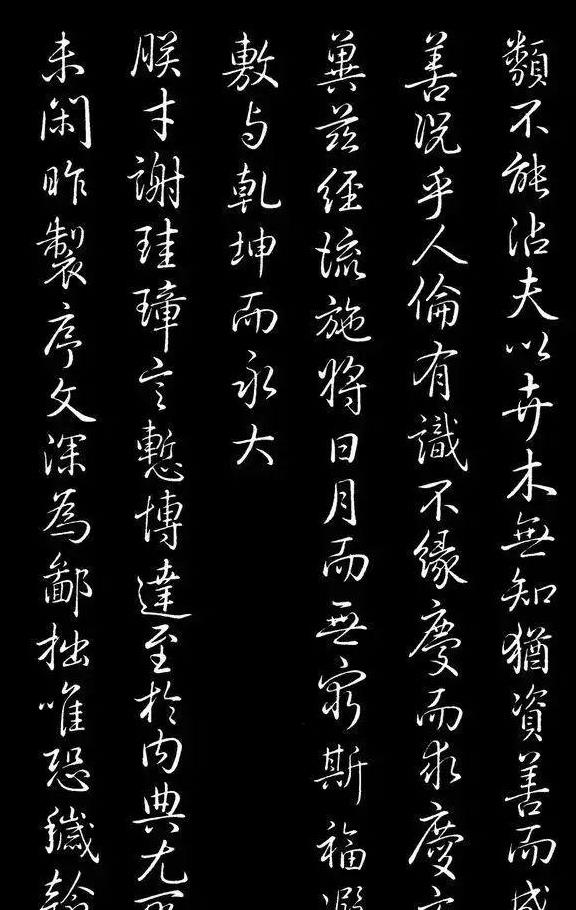 類不能沾夫以卉木無知猶資善而成
善況乎人倫有識不緣慶而求慶方
冀茲經流施將日月而無窮斯福遐
敷与乾坤而永大
朕才謝珪璋言慙博達至於内典尤所
未閑昨製序文深為鄙拙唯恐穢翰